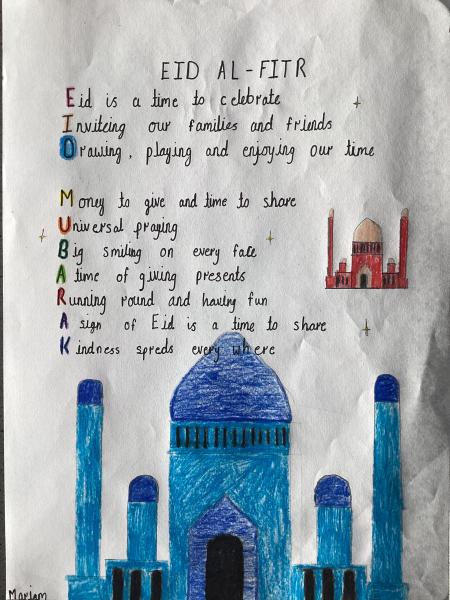 EID AL-FITR
Eid is a time to celebrate
Inviteing our families and friends
Drawing, playing and enjoying our time
Money to give and time to share
Universal praying
Big smiling on every face
A time of giving presents
Running round and having fun
A sign of Eid is a time to share
Kindness spreds every where
Mariam